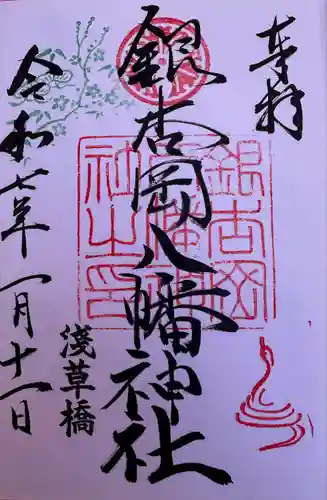 奉拝
銀杏岡八幡神社
淺草橋
令和七年一月十一日
銀杏岡
八幡神
社之印